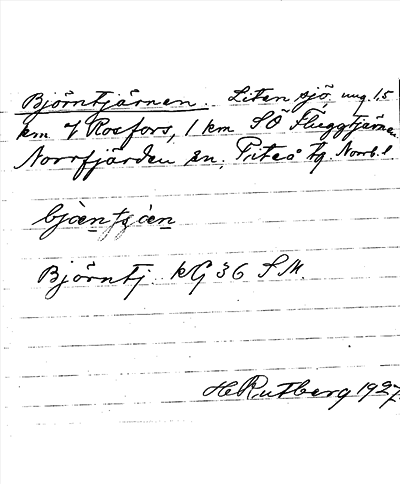 Björntjärnen. Liten sjö, ung. 1,5
km V Rosfors, 1 km SÖ Fluggtjärnen
Norrfjärden sn, Piteå tg. Norrb. l
Björntj. kG 36 S M.
H Rutberg 1927